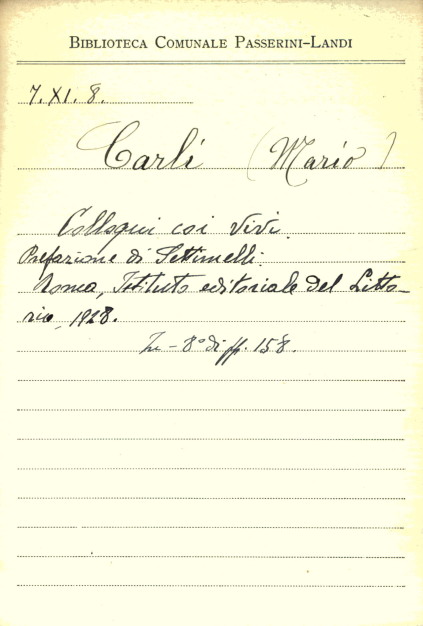 BIBLIOTECA COMUNALE PASSERINI-LANDI
7. XI. 8.
Carli (Mario)
Colloqui coi vivi.
Prefazione di Settimelli.
Roma, Istituto editoriale del Litto-
rio, 1928.
In-8° di pp. 158.